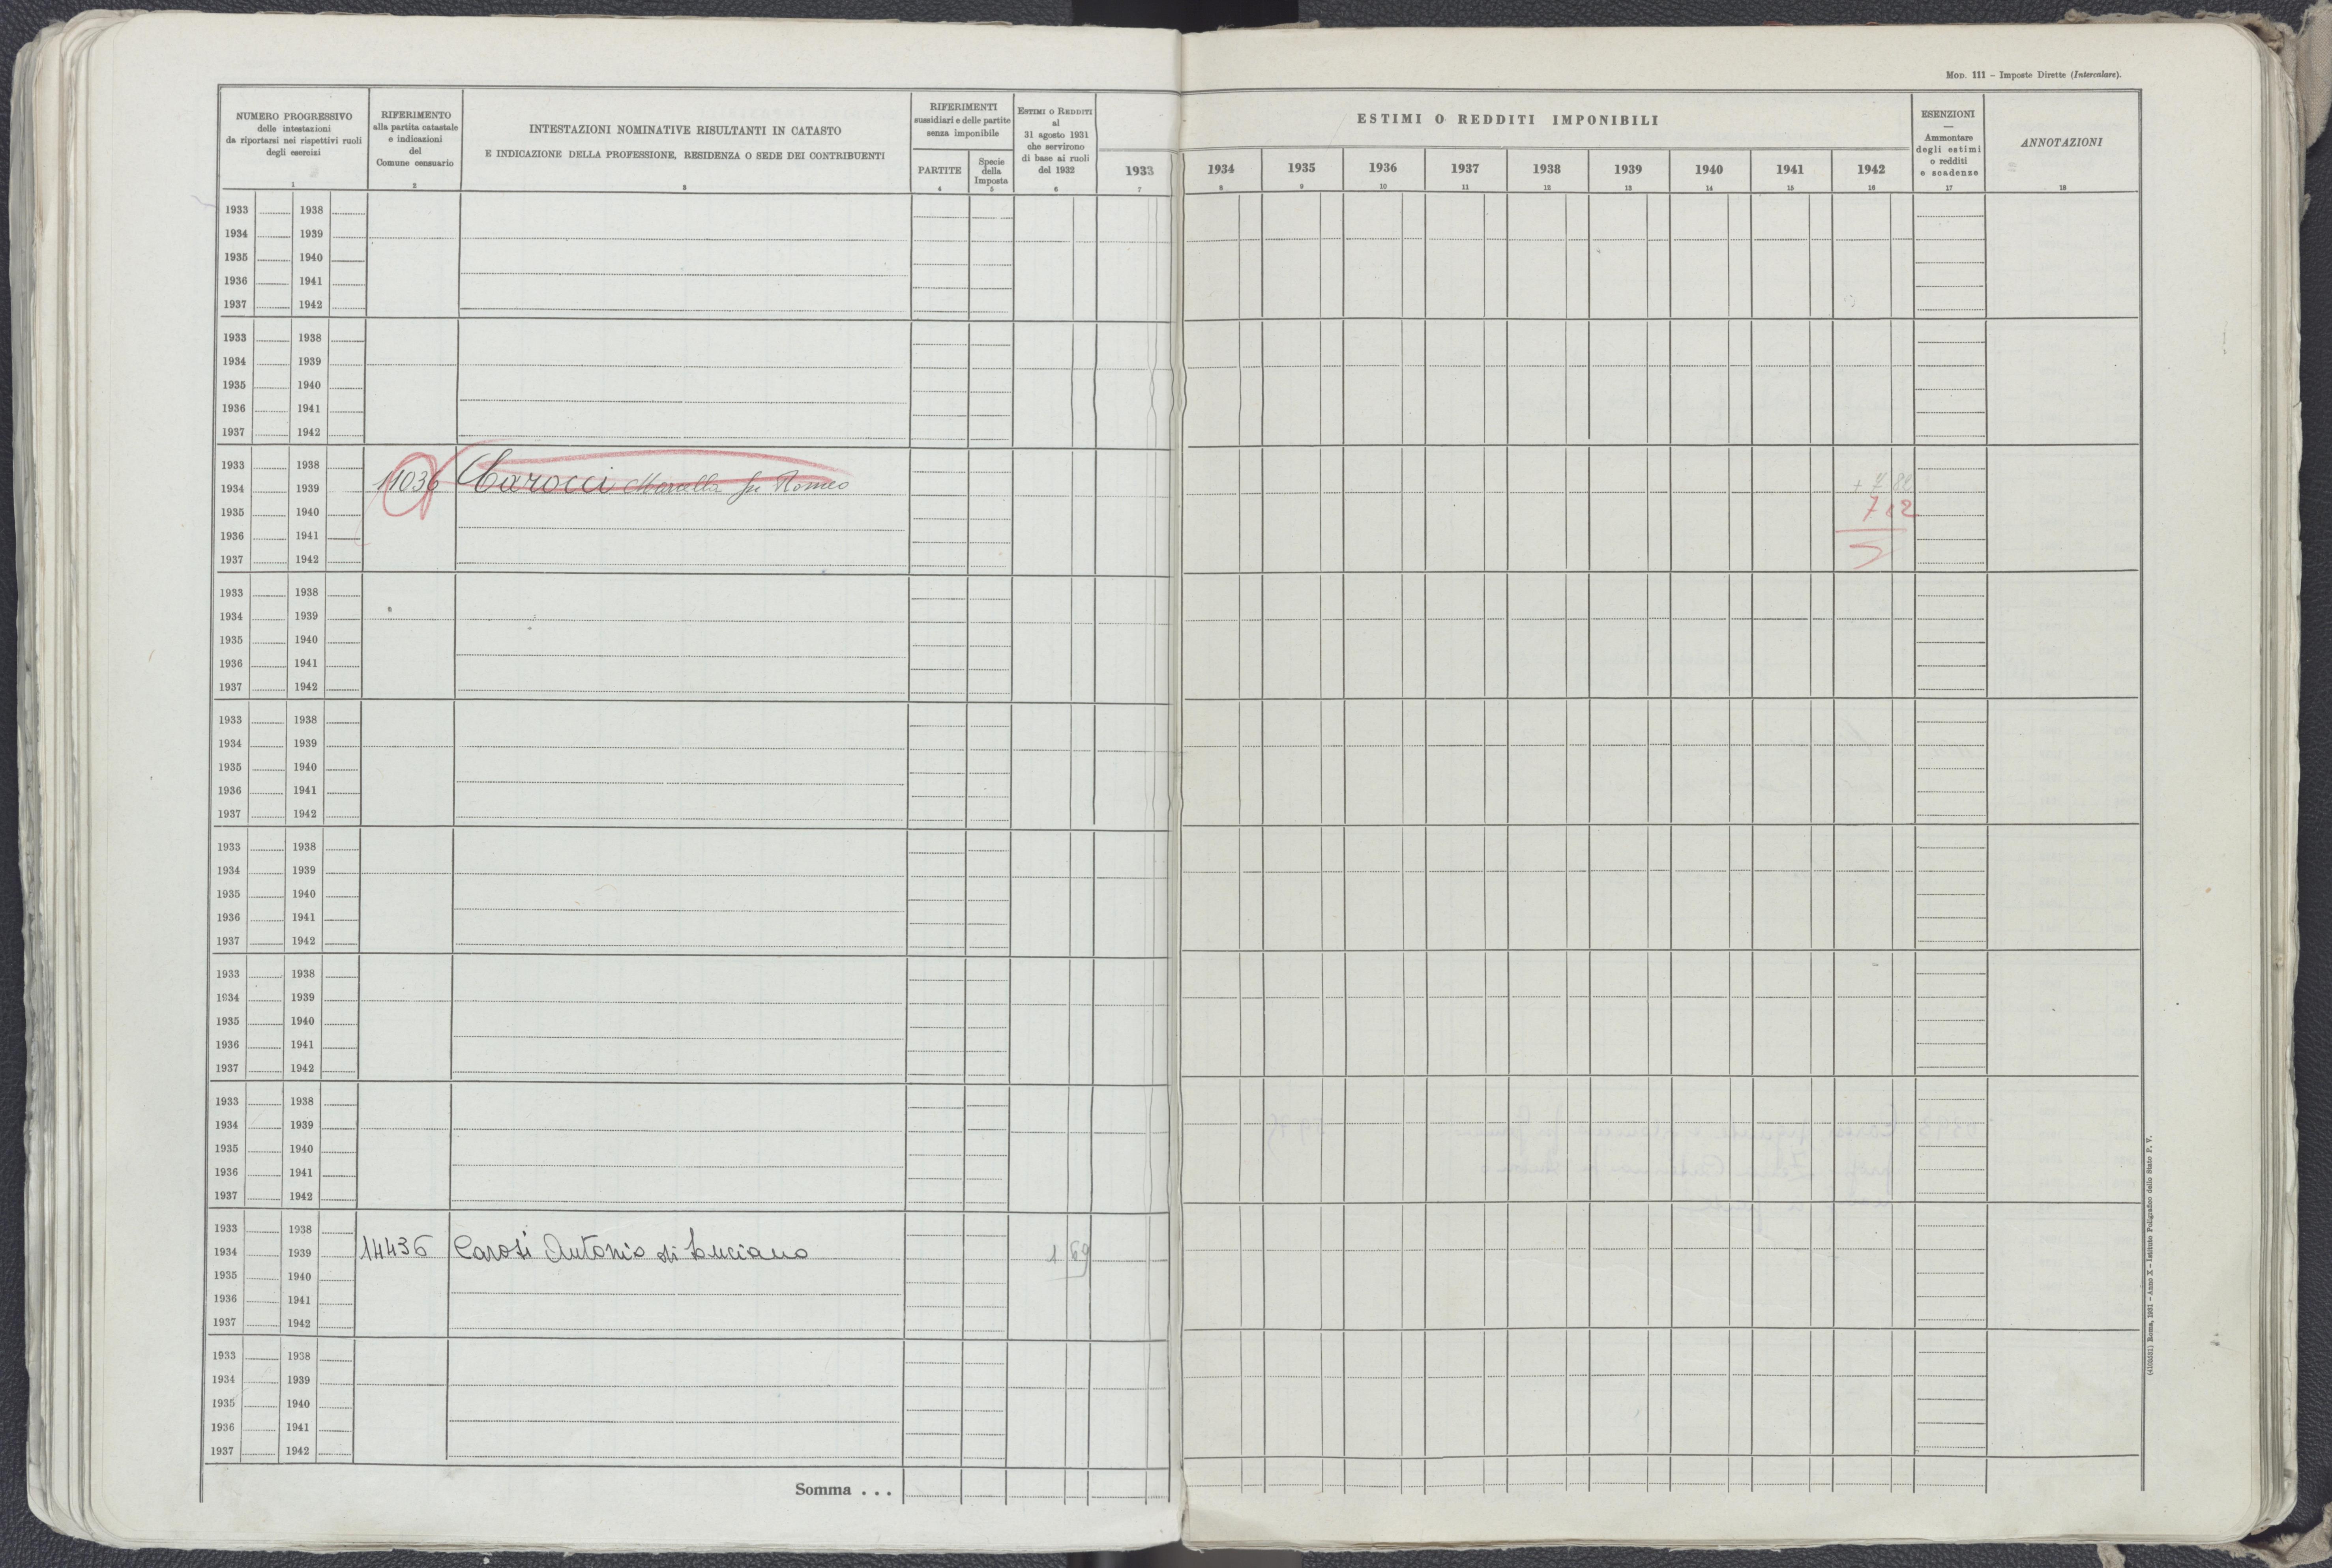 MOD. 111 – Imposte Dirette (Intercalare).
NUMERO PROGRESSIVO
delle intestazioni
da riportarsi nei rispettivi ruoli
degli esercizi
1
RIFERIMENTO
alla partita catastale
e indicazioni
del
Comune censuario
2
INTESTAZIONI NOMINATIVE RISULTANTI IN CATASTO
E INDICAZIONE DELLA PROFESSIONE, RESIDENZA O SEDE DEI CONTRIBUENTI
3
RIFERIMENTI
sussidiari e delle partite
senza imponibile
PARTITE
4
Specie
della
Imposta
5
ESTIMI O REDDITI
al
31 agosto 1931
che servirono
di base ai ruoli
del 1932
6
ESTIMI O REDDITI IMPONIBILI
1933 1934 1935 1936 1937 1938 1939 1940 1941 1942
7 8 9 10 11 12 13 14 15 16
ESENZIONI
—
Ammontare
degli estimi
o redditi
e scadenze
17
ANNOTAZIONI
18
1933 1938
1934 1939
1935 1940
1936 1941
1937 1942
1933 1938
1934 1939
1935 1940
1936 1941
1937 1942
1933 1938
1934 1939 11036 Carocci fu Romeo
1935 1940
1936 1941
1937 1942
1933 1938
1934 1939
1935 1940
1936 1941
1937 1942
1933 1938
1934 1939
1935 1940
1936 1941
1937 1942
1933 1938
1934 1939
1935 1940
1936 1941
1937 1942
1933 1938
1934 1939
1935 1940
1936 1941
1937 1942
1933 1938
1934 1939
1935 1940
1936 1941
1937 1942
1933 1938
1934 1939 14436 Carosi Antonio di Luciano 1 69
1935 1940
1936 1941
1937 1942
1933 1938
1934 1939
1935 1940
1936 1941
1937 1942
Somma . . .
(4100531) Roma, 1931 – Anno X – Istituto Poligrafico dello Stato P. V.